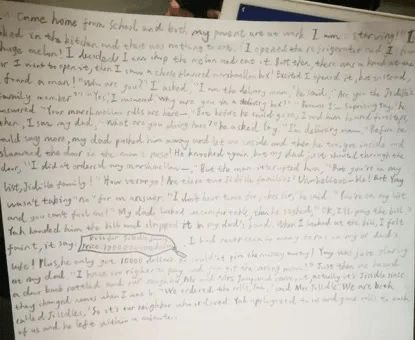 I come home from school and both my parents are at work. I am starving! I
looked in the kitchen and there was nothing to eat. I opened the refrigerator and I
huge melon! I decided I can chop the melon and eat it. But then, there was a knock at the
door I went to open it, then I saw a cheese planned marshmallow box! Excited I opened it, but instead,
I found a man! "Who are you?" I asked. "I am the delivery man," he said. "Are you the Jisdille's
family member?" "Yes," I answered "Why are you in a delivery box?" "Because I'm surprising you," he
answered "Your marshmallow rolls are here—" But before he could go on, I and him heard footsteps
then, I saw my dad. "What are you doing here?" he asked Yay. "I'm delivery man," Before he
could say more, my dad pushed him away and let me inside and then he too, got inside and
slammed the door in the man's nose! He knocked again but my dad just shouted through the
door, "I did not ordered any marshmallow—" "But the man interrupted him, "But you're on my
list, Jisdille family!" "How very odd! Are there two Jisdille families? Unbelievable! But Yay
wasn't taking "no" for an answer. "I don't have time for jokes sir," he said. "You're on my list
and you can't fool me!" My dad looked uncomfortable, then he said, "OK, I'll pay the bill."
Yah handed him the bill and slapped it in my dad's hand. When I looked at the bill, I felt
faint, it say
I had never seen so many zeros in my
life! Plus, he only got 10000 dollars. He couldn't pay the money! Yay was just glaring
at my dad "I have no right to pay
a door knob rattled and our neighbor
they changed names when I was "We ordered the rolls, Yah," said Mrs Jisdille. We are both
called Jisdilles. So it's our neighbor who ordered. Yah apologized to us and gave rolls to each
of us and he left within a minute.